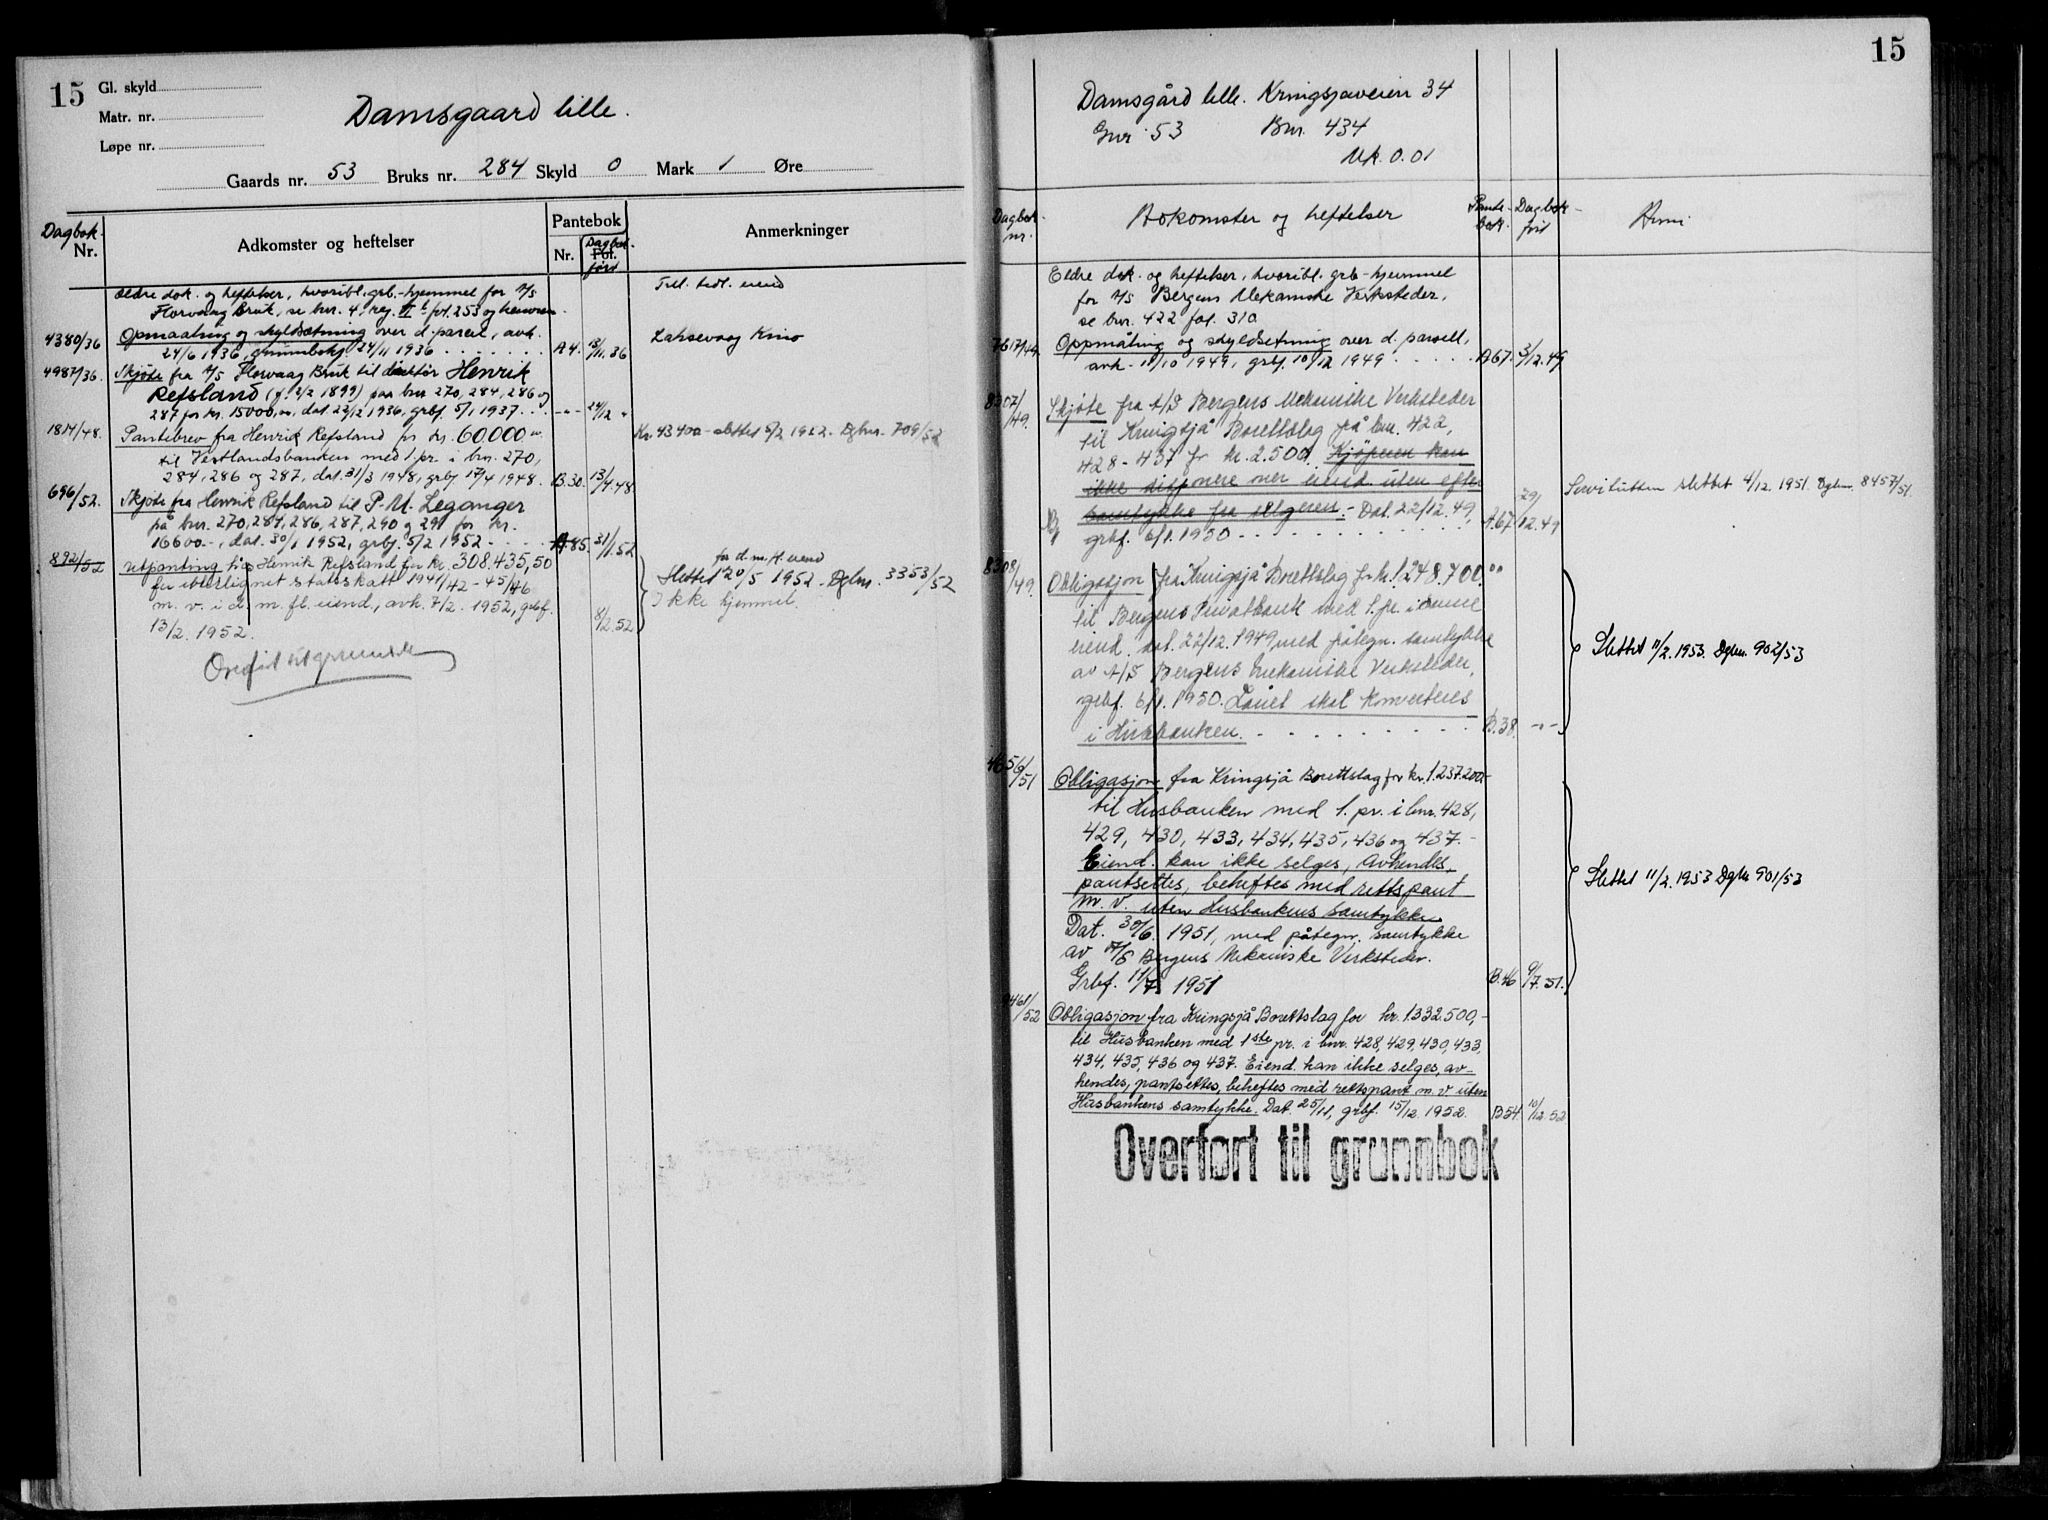 15
Gl. skyld
Matr. nr.
Løpe nr.
Damsgaard lille.
Gaards nr. 53 Bruks nr. 284 Skyld 0 Mark 1 Øre
Dagbok-
Nr.
Adkomster og heftelser
Pantebok
Nr.
Dagbok-
Fol.
ført
Anmerkninger
Ældre dok. og heftelser, hvoribl. grb.-hjemmel for A/S
Florvaag Bruk, se bnr. 4, reg. II fol. 253 og
Till. bebl. eiend
4380/36 Opmaaling og skyldsetning over d. parcel, avh.
24/6 1936, grunnbokf 24/11 1936 A 4. 13/11.36
Laksevaag Kino
4987/36. Skjøte fra A/S Florvaag Bruk til direktør Henrik
Refsland (f. 2/2 1899) paa bnr 270, 284, 286 og
287 for kr. 15000,00, dat 22/12 1936, grbf. 5/1 1937 -"- 24/12 "
1814/48. Pantebrev fra Henrik Refsland for kr. 60.000.00
til Vestlandsbanken med 1. pr. i bnr. 270,
284, 286 og 287, dat. 31/3 1948, grbf 17/4 1948. B.30. 13/4.48.
Kr. 43400 - slettet 5/2 1952 - Dgbnr. 709/52
696/52. Skjøte fra Henrik Refsland til P. M. Leganger
på bnr. 270, 284, 286, 287, 290 og 291 for kr.
16600.-, dat. 30/1 1952, grbf. 5/2 1952 A.85. 31/1.52
892/52 Utpanting hos Henrik Refsland for kr. 308.435,50
for etterlignet statsskatt 1941/42 - 45/46
m. v. i d. m. fl. eiend, avh. 7/2. 1952, grbf.
13/2. 1952. 8/2.52
for d. m. fl. eiend
Slettet 20/5 1952 - Dgbnr. 3353/52
Ikke hjemmel.
Overført til grunnbok
15
Damsgård lille. Kringsjåveien 34
Gnr 53 Bnr. 434
Mk. 0.01
Dagbok-
nr.
Adkomster og heftelser
Pante-
bok.
Dagbok-
ført
Anm
Eldre dok. og heftelser, hvoribl. grb-hjemmel
for A/S Bergens Mekaniske Verksteder,
se bnr. 422 fol. 310
7617/49. Oppmåling og skyldsetning over d. parsell,
avh. 11/10 1949, grbf. 10/12 1949 A67. 3/12.49
8307/49. Skjøte fra A/S Bergens Mekaniske Verksteder
til Kringsjå Borettslag på bnr. 422,
428-437 for kr. 2.500. Kjøperen kan
ikke disponere over eiend uten efter
samtykke fra selgeren.- Dat. 22/12.49,
grbf. 6/1.1950 A.67 29/12.49
Servitutten slettet 4/12. 1951. Dgbnr. 8457/51.
8308/49. Obligasjon fra Kringsjå Borettslag for kr. 1.248.700.00
til Bergens Privatbank med 1. pr. i denne
eiend. dat. 22/12.1949, med påtegn. samtykke
av A/S Bergens Mekaniske Verksteder,
grbf. 6/1.1950. Lånet skal konverteres
i Husbanken. B.38. -"-
Slettet 11/2. 1953. Dgbnr. 902/53
4656/51 Obligasjon fra Kringsjå Borettslag for kr. 1.237.200.-
til Husbanken med 1. pr. i bnr. 428,
429, 430, 433, 434, 435, 436 og 437.-
Eiend. kan ikke selges, avhendes,
pantsettes, beheftes med rettspant
m. v. uten Husbankens samtykke.
Dat. 30/6 1951, med påtegn. samtykke
av A/S Bergens Mekaniske Verksteder.
Grbf. 11/7 1951 B.46 9/7.51.
Slettet 11/2. 1953 Dgbn 901/53
9461/52 Obligasjon fra Kringsjå Borettslag for kr. 1.332.500,-
til Husbanken med 1ste pr. i bnr. 428, 429, 430, 433,
434, 435, 436 og 437. Eiend. kan ikke selges, av-
hendes, pantsettes, beheftes med rettspant m. v. uten
Husbankens samtykke. Dat. 25/11, grbf. 15/12. 1952. B54. 10/12.52
Overført til grunnbok